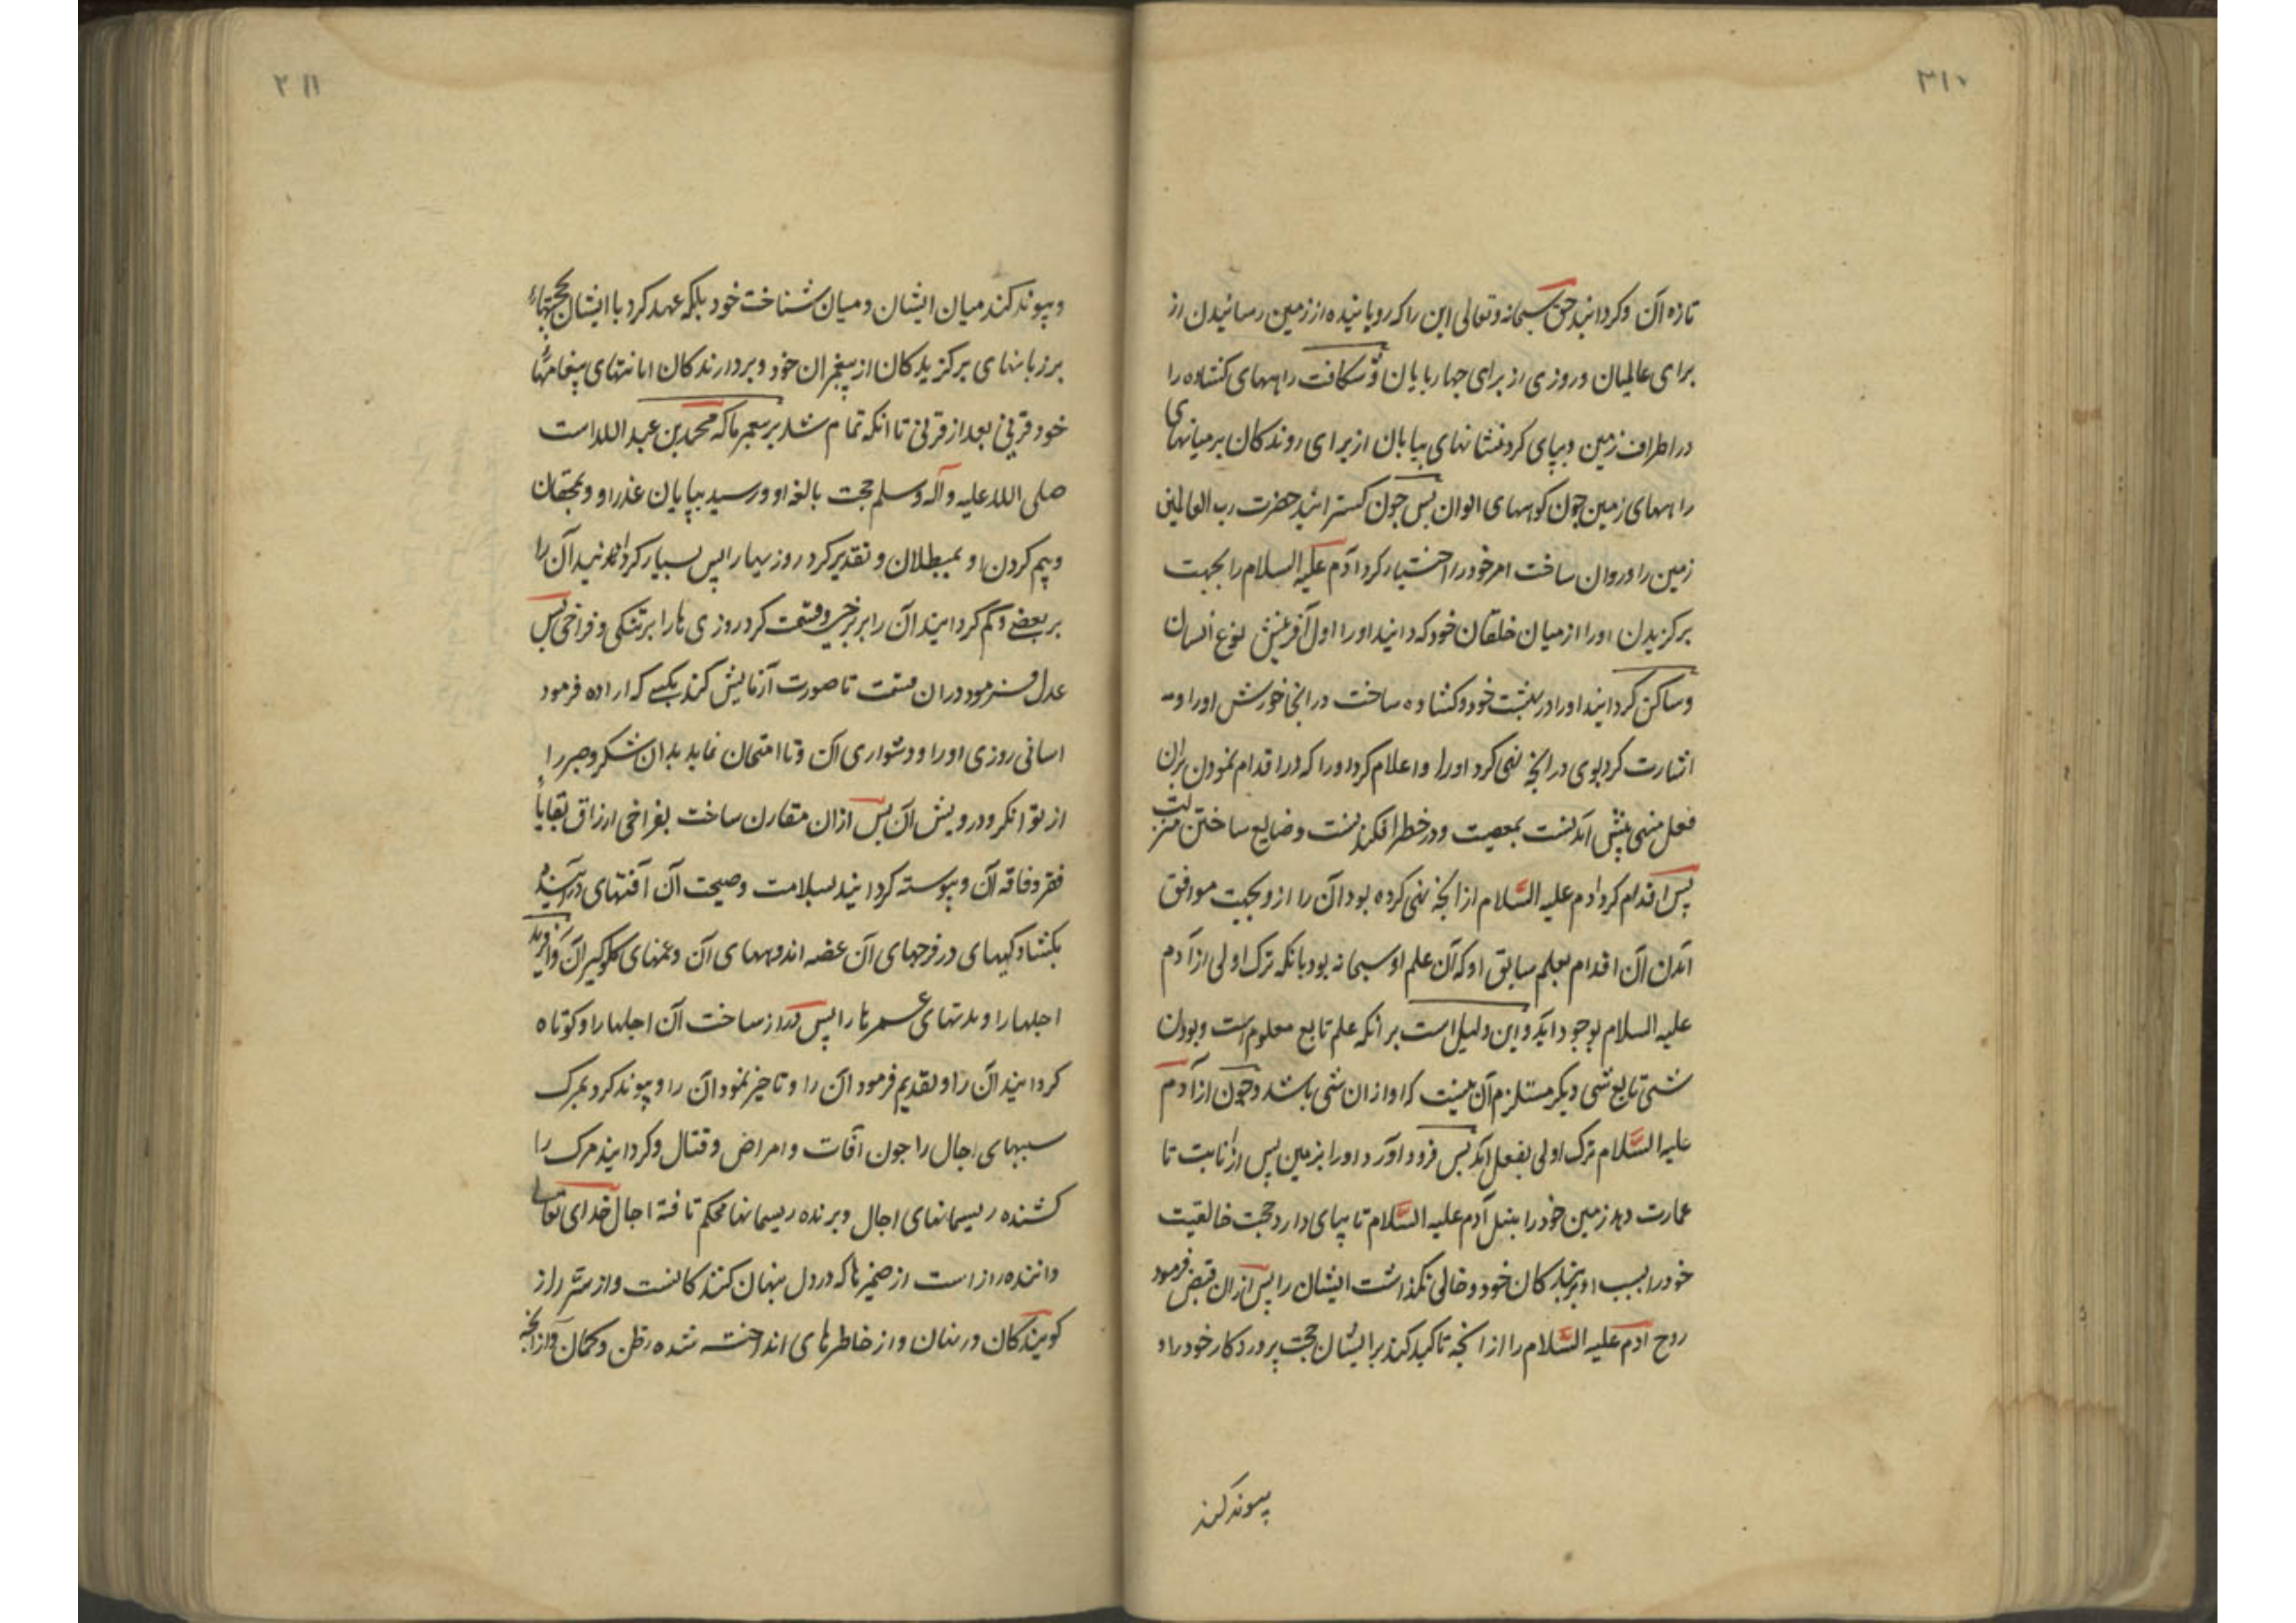 ۲۱۰
تازه آن و کردانید حق سبحانه وتعالی این را که رویانیده از زمین رسانیدن از
برای عالمیان و روزی از برای چهارپایان و شکافت راههای کشاده را
در اطراف زمین و بپای کرد نشانهای بیابان از برای روندکان بر میانهای
راههای زمین چون کوههای الوان پس چون کسترانید حضرت رب العالمین
زمین را و روان ساخت امر خود را اختیار کرد آدم علیه السلام را بجهت
برکزیدن او را از میان خلقان خود که دانید او را اول آفرینش نوع انسان
و ساکن کردانید او را در بهشت خود و کشاده ساخت در آنجا خورش او را و
اشارت کرد بوی در آنچه نهی کرد او را و اعلام کرد او را که در اقدام نمودن بران
فعل منهی پیش آمدنست بمعصیت و در خطر افکندنست و ضایع ساختن منزلت
پس اقدام کرد ادم علیه السّلام از آنچه نهی کرده بود آن را از و بجهت موافق
آمدن آن اقدام بعلم سابق او که آن علم او سبحانه بود بانکه ترک اولی از آدم
علیه السلام بوجود آید و این دلیل است بر انکه علم تابع معلوم است و بودن
شی تابع شی دیکر مستلزم آن نیست که او از ان شی باشد و چون از آدم
علیه السّلام ترک اولی بفعل آمد پس فرود آورد او را بزمین پس از انابت تا
عمارت دهد زمین خود را بنسل آدم علیه السّلام تا بپای دارد حجت خالقیت
خود را بسبب او بر بندکان خود و خالی نکذاشت ایشان را پس از ان قبض فرمود
روح ادم علیه السّلام را از آنچه تاکید کند بر ایشان حجت پروردکار خود را و
پیوند کند
۲۱۱
و پیوند کند میان ایشان و میان شناخت خود بلکه عهد کرد با ایشان بحجتهاء
بر زبانهای برکزیدکان از پیغمبران خود و بردارندکان امانتهای پیغامهاء
خود قرنی بعد از قرنی تا انکه تمام شد بر پیغمبر ما که محمد بن عبد الله است
صلی الله علیه و آله وسلم حجت بالغه او و رسید بپایان عذر او و بمحقان
و بیم کردن او بمبطلان و تقدیر کرد روزیها را پس بسیار کردانید آن را
بر بعضی و کم کردانید آن را بر برخی و قسمت کرد روزی ها را بر تنکی و فراخی پس
عدل فرمود در ان قسمت تا صورت آزمایش کند بکسی که اراده فرمود
اسانی روزی او را و دشواری آن و تا امتحان نماید بدان شکر و صبر را
از توانکر و درویش آن پس از ان مقارن ساخت بفراخی ارزاق بقایاء
فقر و فاقه آن و پیوسته کردانید بسلامت و صحت آن آفتهای در آینده
بکشادکیهای در فرجهای آن غصه اندوههای آن و غمهای کلوکیر آن و آفرید
اجلها را و مدتهای عمرها را پس دراز ساخت آن اجلها را و کوتاه
کردانید آن را و تقدیم فرمود آن را و تاخیر نمود آن را و پیوند کرد بمرک
سببهای اجال را چون آفات و امراض و قتال و کردانید مرک را
کشنده ریسمانهای اجال و برنده ریسمانها محکم تافته اجال خدای تعالی
داننده راز است از ضمیرها که در دل پنهان کنندکانست و از سرّ راز
کویندکان در نهان و از خاطرهای انداخته شده بظن و کمان و از آنچه